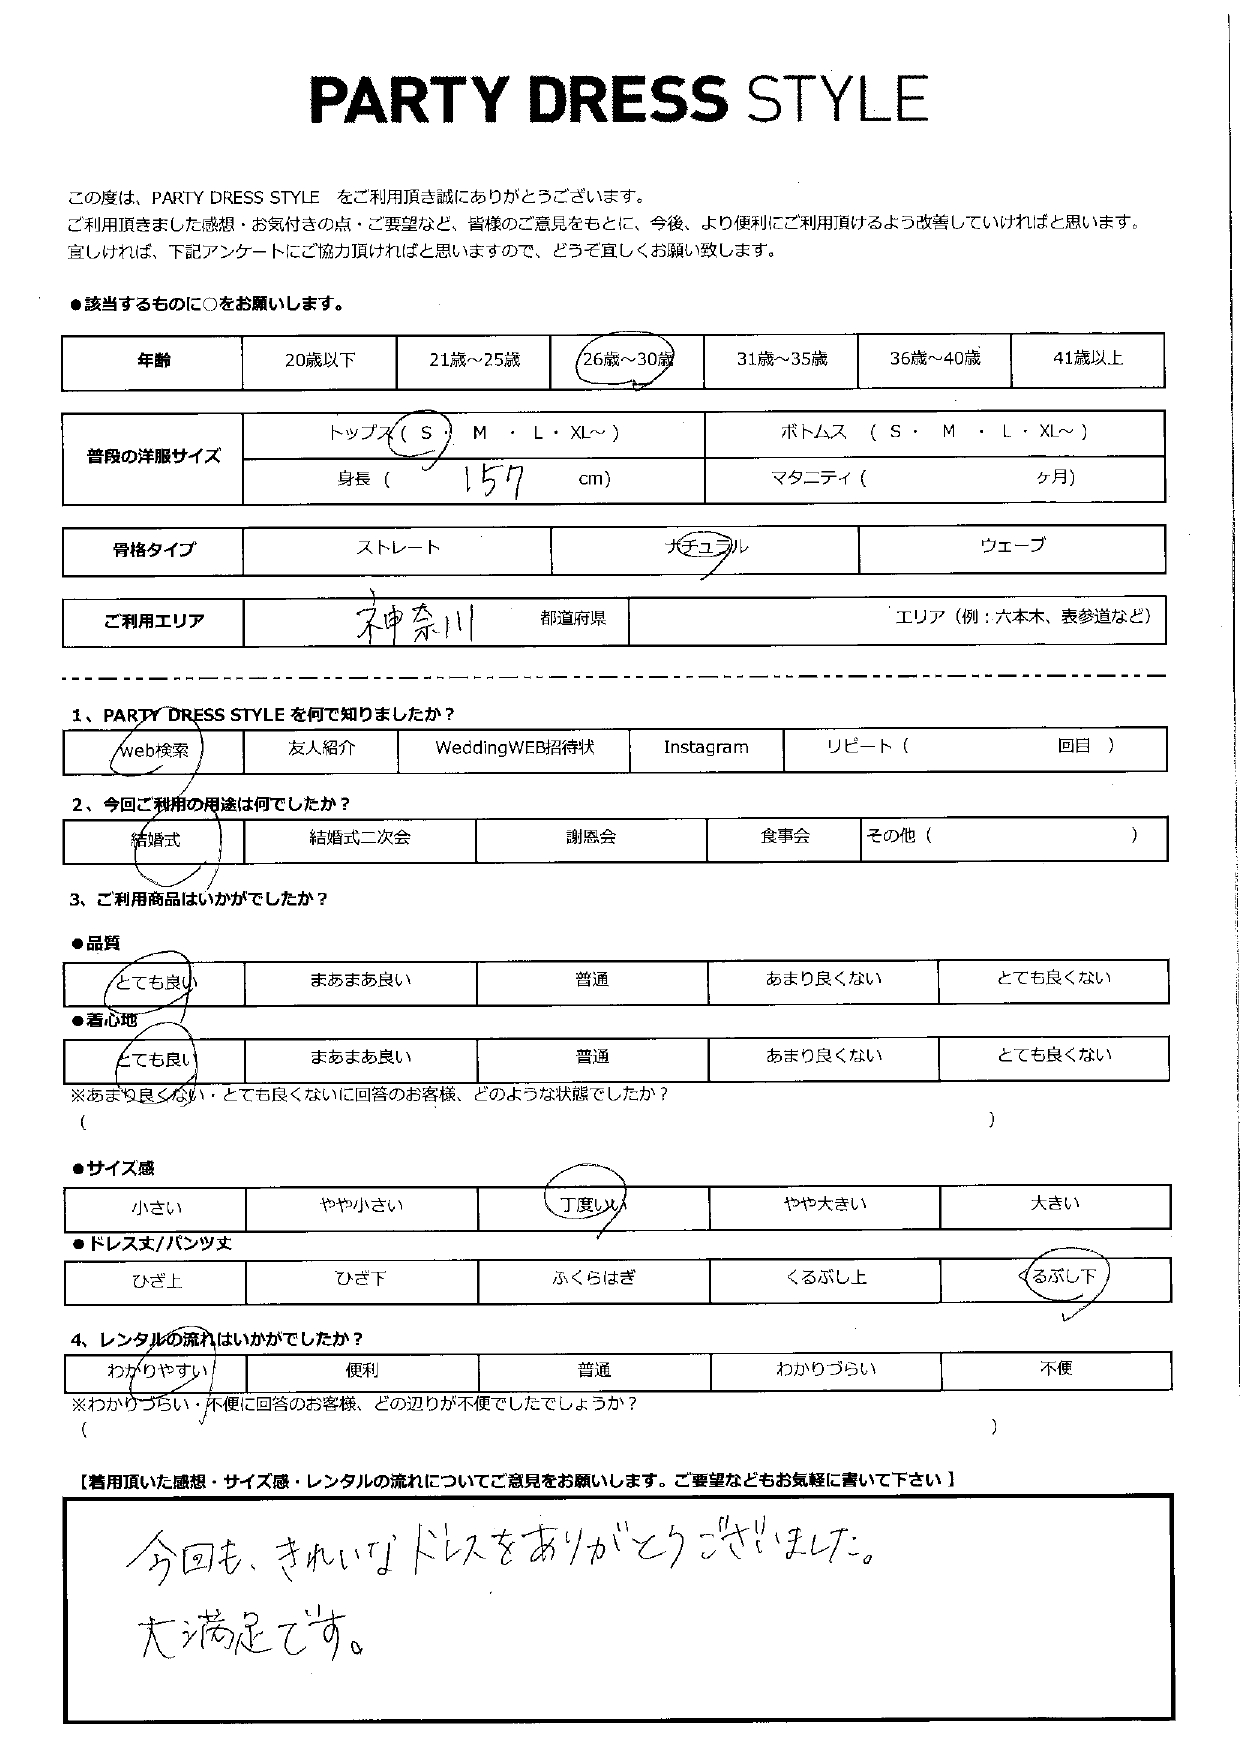 PARTY DRESS STYLE
この度は、PARTY DRESS STYLE をご利用頂き誠にありがとうございます。
ご利用頂きました感想・お気付きの点・ご要望など、皆様のご意見をもとに、今後、より便利にご利用頂けるよう改善していければと思います。
宜しければ、下記アンケートにご協力頂ければと思いますので、どうぞ宜しくお願い致します。
●該当するものに○をお願いします。
年齢 20歳以下 21歳～25歳 26歳～30歳 31歳～35歳 36歳～40歳 41歳以上
普段の洋服サイズ
トップス ( S ・ M ・ L ・ XL～ ) ボトムス ( S ・ M ・ L ・ XL～ )
身長 ( 157 cm) マタニティ ( ヶ月)
骨格タイプ ストレート ナチュラル ウェーブ
ご利用エリア 神奈川 都道府県 エリア（例：六本木、表参道など）
1、PARTY DRESS STYLE を何で知りましたか？
web検索 友人紹介 WeddingWEB招待状 Instagram リピート ( 回目 )
2、今回ご利用の用途は何でしたか？
結婚式 結婚式二次会 謝恩会 食事会 その他 ( )
3、ご利用商品はいかがでしたか？
●品質
とても良い まあまあ良い 普通 あまり良くない とても良くない
●着心地
とても良い まあまあ良い 普通 あまり良くない とても良くない
※あまり良くない・とても良くないに回答のお客様、どのような状態でしたか？
( )
●サイズ感
小さい やや小さい 丁度いい やや大きい 大きい
●ドレス丈/パンツ丈
ひざ上 ひざ下 ふくらはぎ くるぶし上 くるぶし下
4、レンタルの流れはいかがでしたか？
わかりやすい 便利 普通 わかりづらい 不便
※わかりづらい・不便に回答のお客様、どの辺りが不便でしたでしょうか？
( )
【着用頂いた感想・サイズ感・レンタルの流れについてご意見をお願いします。ご要望などもお気軽に書いて下さい 】
今回も、きれいなドレスをありがとうございました。
大満足です。